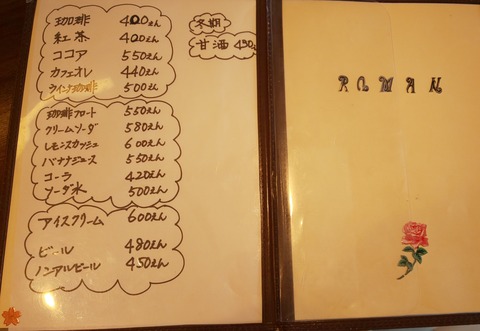 珈琲 400えん
紅茶 400えん
ココア 550えん
カフェオレ 440えん
ウインナ珈琲 500えん
珈琲フロート 550えん
クリームソーダ 580えん
レモンスカッシュ 600えん
バナナジュース 550えん
コーラ 420えん
ソーダ水 500えん
アイスクリーム 600えん
ビール 480えん
ノンアルビール 450えん
冬期
甘酒 450えん
ROMAN